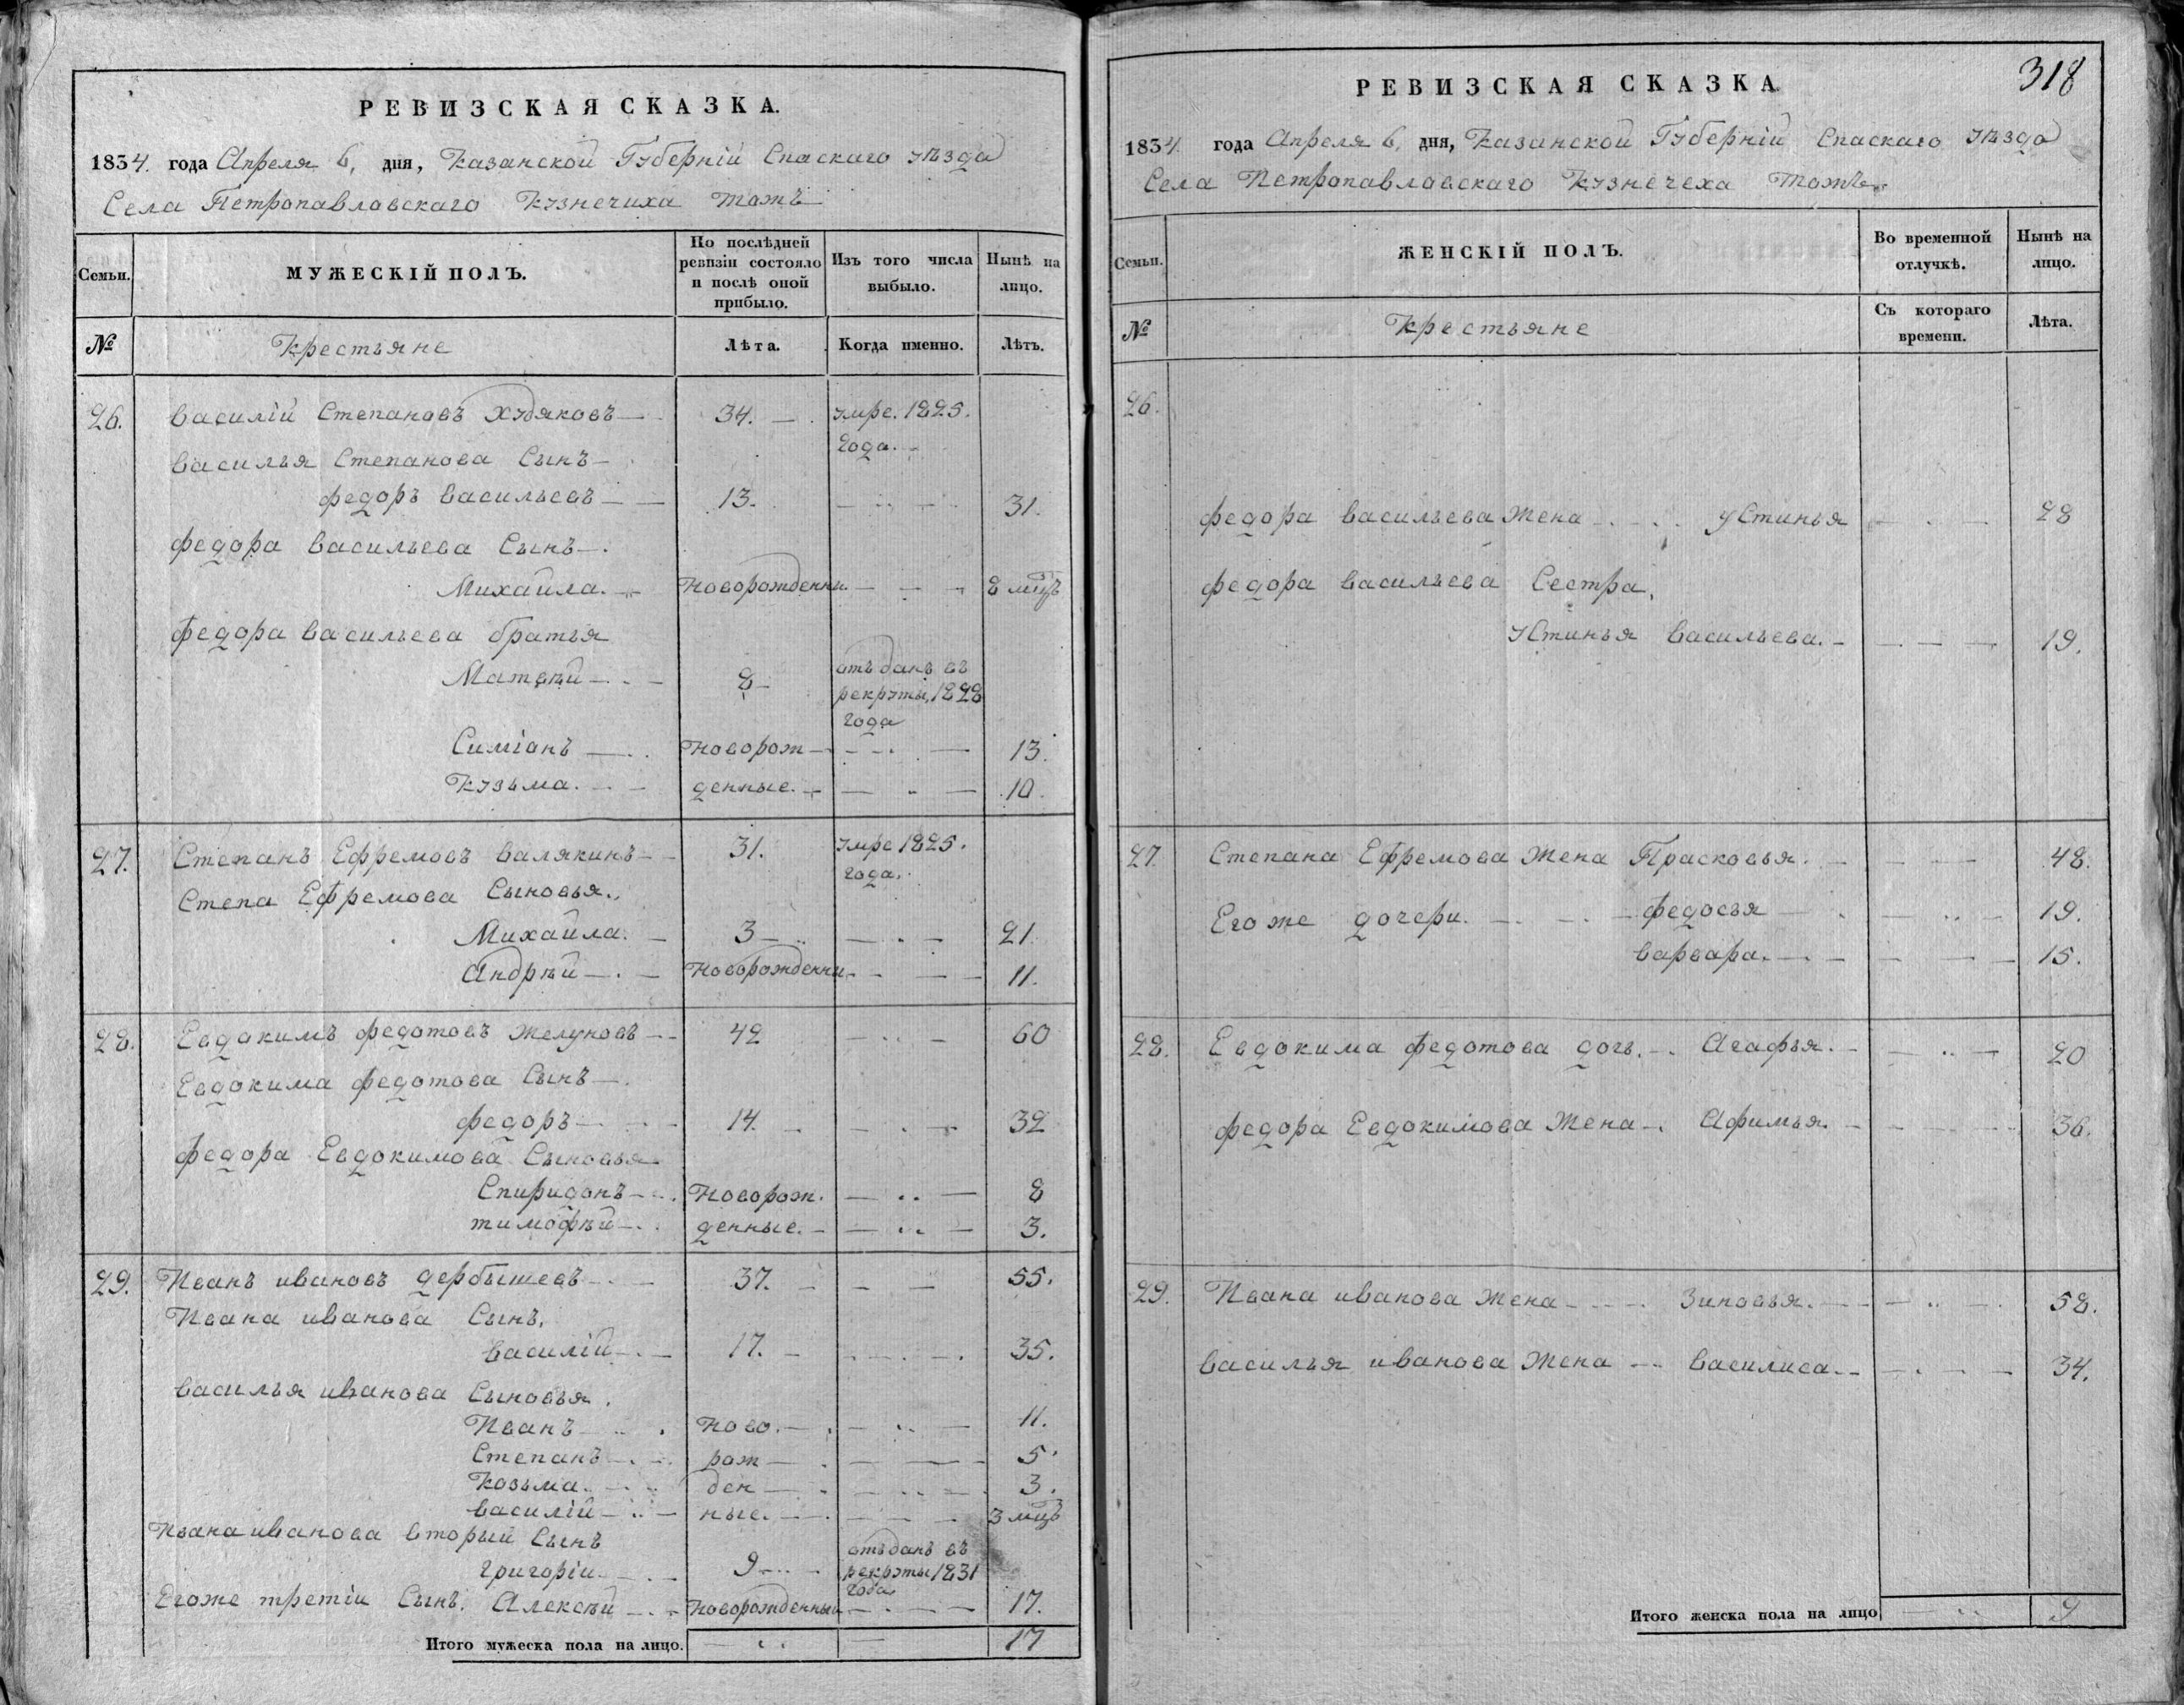 РЕВИЗСКАЯ СКАЗКА.
1834. года Апреля 6, дня, Казанской Губерніи Спаскаго уѣзда
Села Петропавловскаго Кузнечиха тожъ
Семьи. МУЖЕСКІЙ ПОЛЪ. По послѣдней ревизіи состояло и послѣ оной прибыло. Изъ того числа выбыло. Нынѣ на лицо.
№ Крестьяне Лѣта. Когда именно. Лѣтъ.
26. Василій Степановъ Худяковъ 34. умре. 1825. года.
Василья Степанова Сынъ
Федоръ Васильевъ 13. 31.
Федора Васильева Сынъ
Михайла. Новорожденны. 8 мцъ
Федора Васильева братья
Матвѣй 8 отъданъ въ рекруты, 1828 года
Симіонъ Новорож 13.
Кузьма. денные. 10.
27. Степанъ Ефремовъ Валякинъ 31. умре 1825. года.
Степа Ефремова Сыновья.
Михайла. 3 21.
Андрѣй Новорожденны. 11.
28. Евдокимъ Федотовъ Желуновъ 42 60
Евдокима Федотова Сынъ
Федоръ 14. 32
Федора Евдокимова Сыновья
Спиридонъ Новорож. 8
тимофѣй денные. 3.
29. Иванъ ивановъ дербышевъ 37. 55.
Ивана иванова Сынъ.
Василій 17. 35.
Василья иванова Сыновья.
Иванъ Ново. 11.
Степанъ рож 5.
Козьма. ден 3.
Василій ные. 3 мцъ
Ивана иванова вторый Сынъ
Григоріи 9 отъданъ въ рекруты 1831 года
Егоже третіи Сынъ. Алексѣй Новорожденный 17.
Итого мужеска пола на лицо. 17
318
РЕВИЗСКАЯ СКАЗКА
1834. года Апреля 6, дня, Казанской Губерніи Спаскаго уѣзда
Села Петропавловскаго Кузнечеха тожъ
Семьи. ЖЕНСКІЙ ПОЛЪ. Во временной отлучкѣ. Нынѣ на лицо.
№ Крестьяне Съ котораго времени. Лѣта.
26.
Федора Васильева Жена Устинья 28
Федора Васильева Сестра,
Устинья Васильева. 19.
27. Степана Ефремова Жена Прасковья. 48.
Егоже дочери. Федосья 19.
Варвара. 15.
28. Евдокима Федотова дочь. Агафья. 20
Федора Евдокимова Жена Афимья. 36.
29. Ивана иванова Жена Зиновья. 58.
Василья иванова Жена Василиса. 34.
Итого женска пола на лицо 9